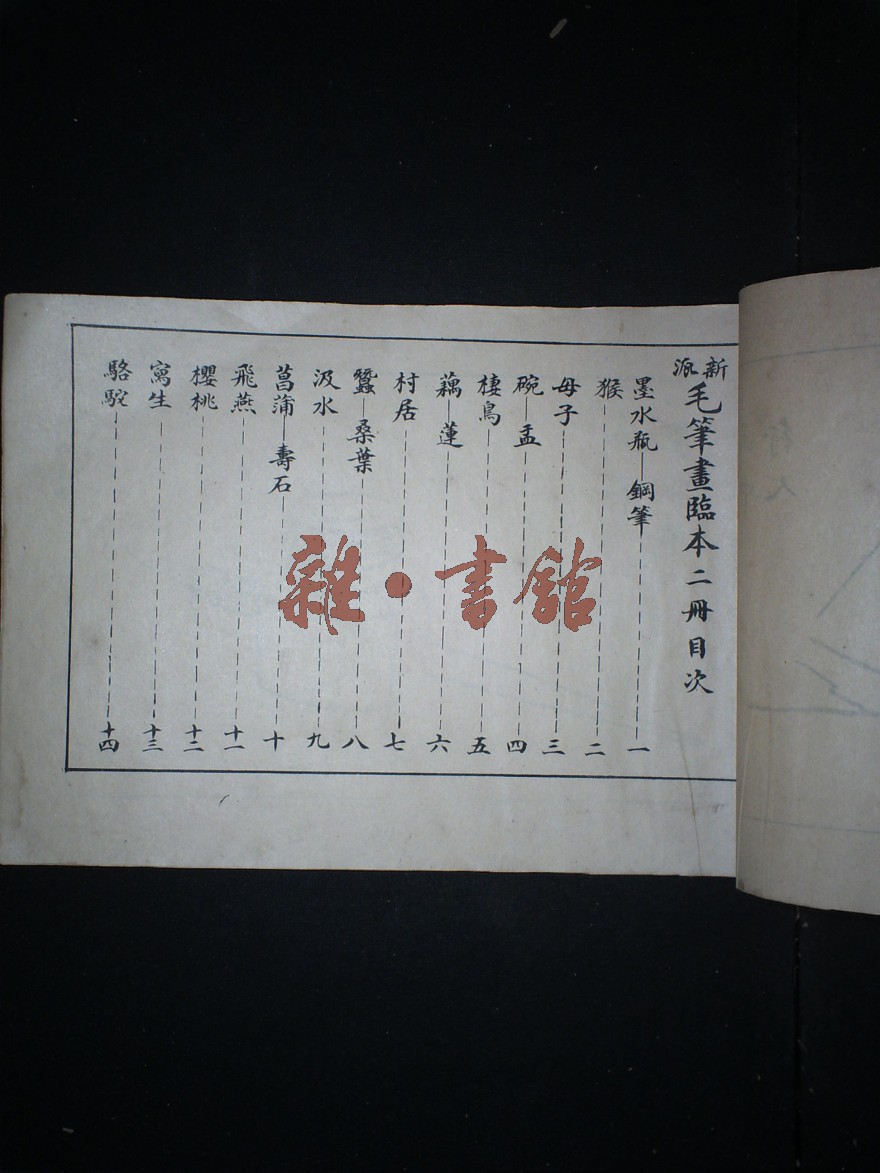 新派毛筆畫臨本二冊目次
墨水瓶—鋼筆 一
猴 二
母子 三
碗—盂 四
棲鳥 五
藕—蓮 六
村居 七
蠶—桑葉 八
汲水 九
菖蒲—壽石 十
飛燕 十一
櫻桃 十二
寫生 十三
駱駝 十四
雜·書館